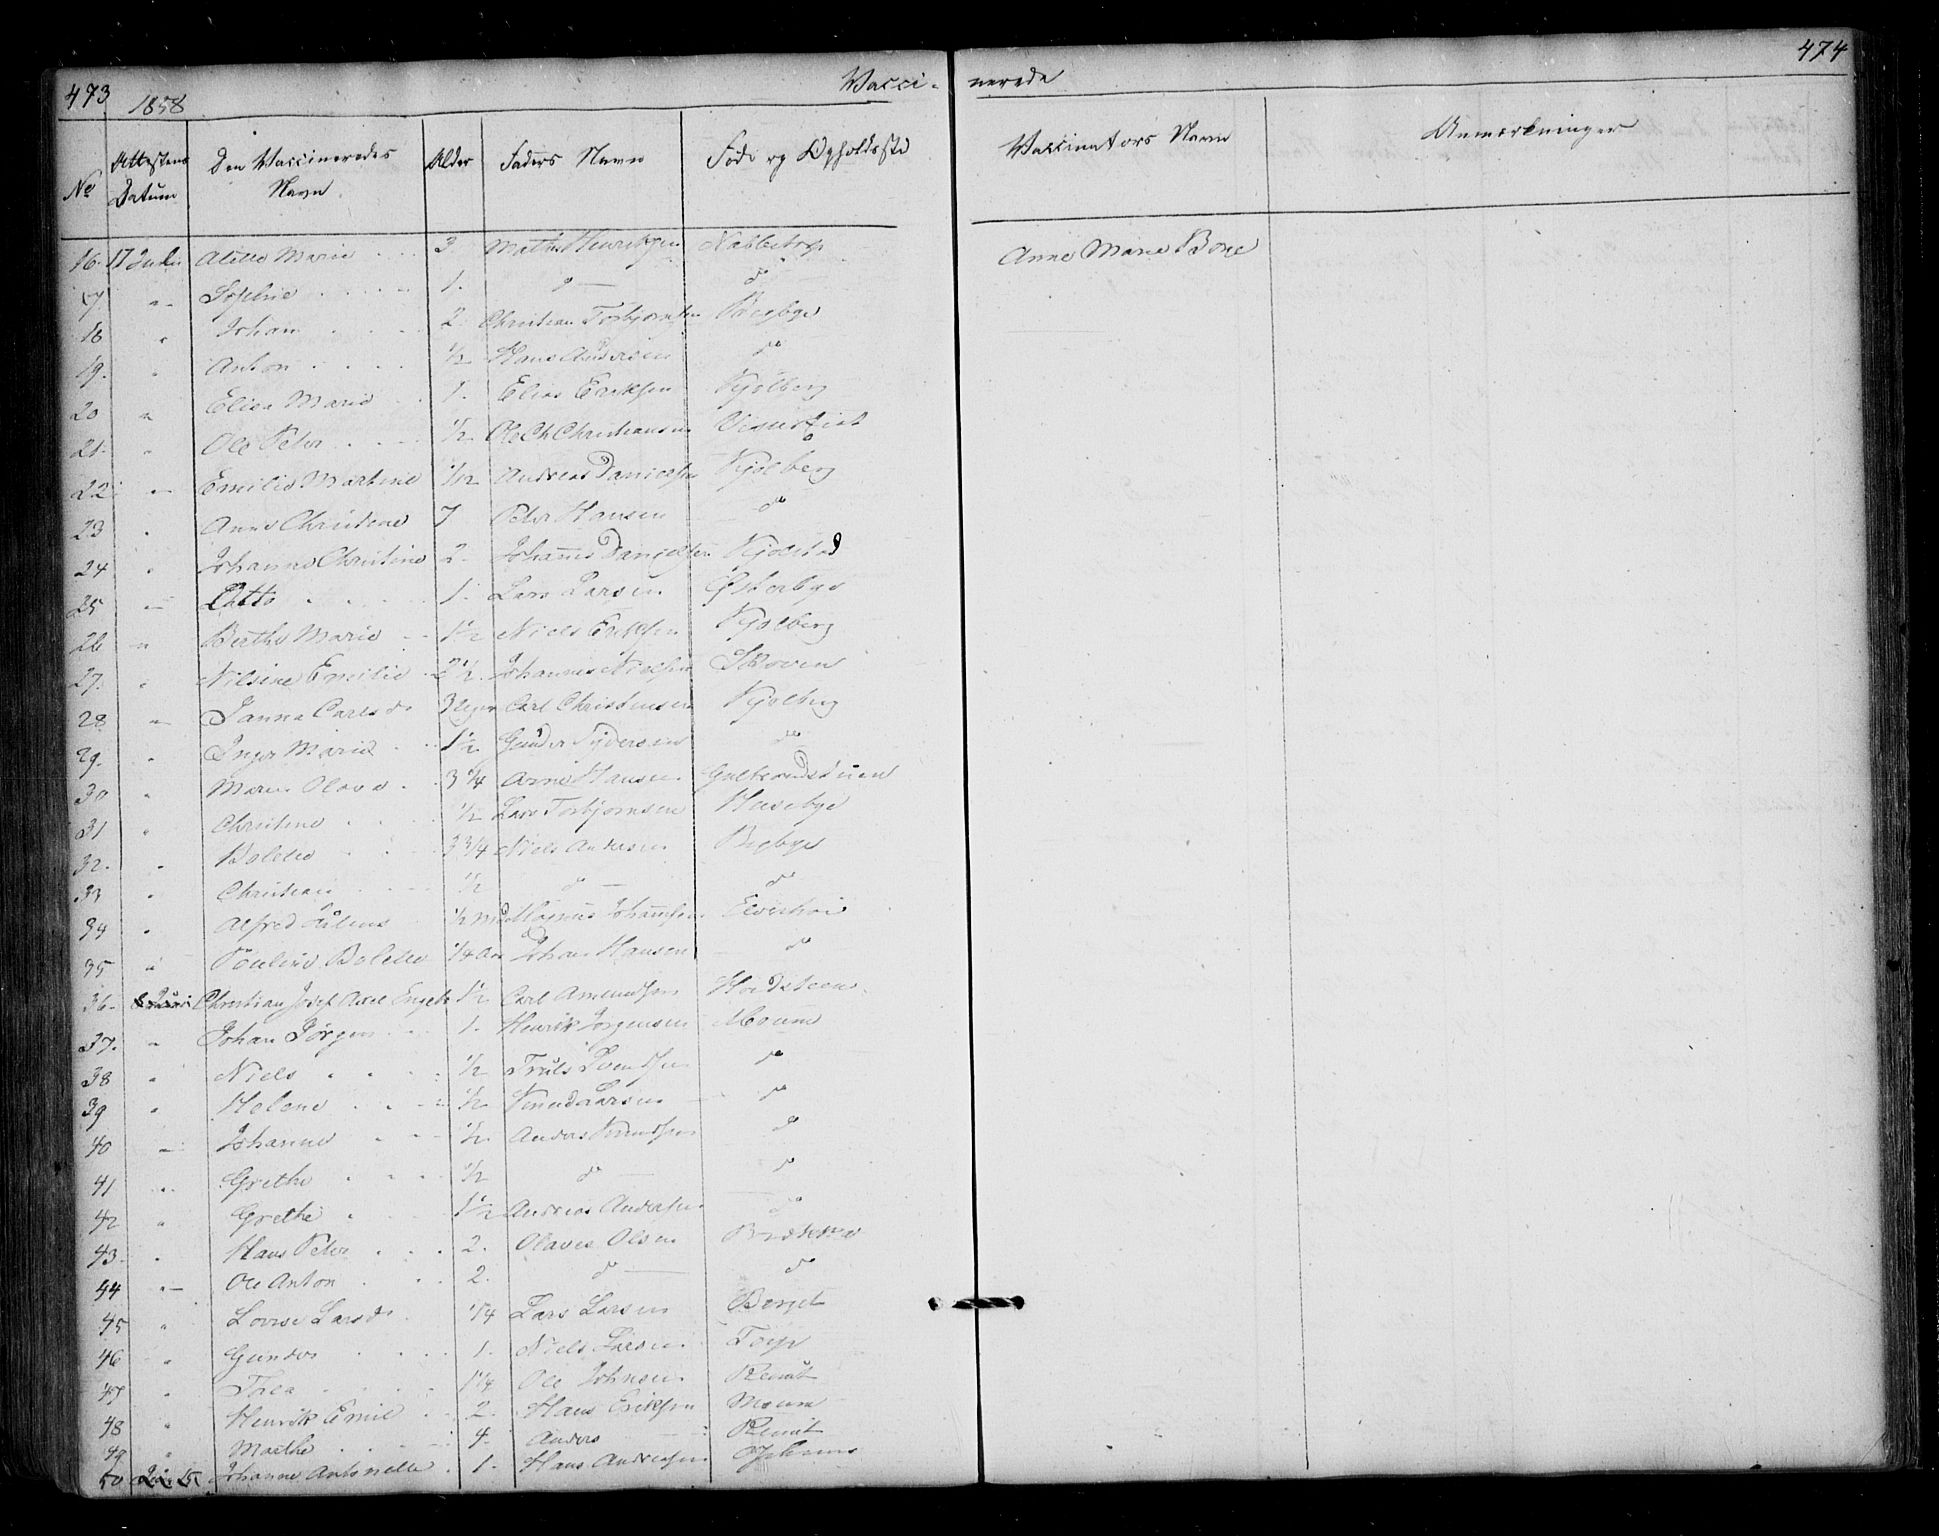 473
1858
Vacci-
nerede
474
No
Attestens Datum
Den Vaccineredes Navn
Alder
Faders Navn
Føde og Opholdssted
Vaccinators Navn
Anmærkninger
16. 17 Juli Marie 3 Henriksen Anne Marie
17 " Sophie 1. do do
18 " Johan 2 Christian Torbjørnsen
19. " Anton 1/2 Hans Andersen do
20 " Elise Marie 1. Elias Eriksen Kjølberg
21. " Ole Peter 1/2 Ole Ch Christiansen
22 " Emilie Martine 1/12 Andreas Danielsen Kjølberg
23 " Anne Christine 7 Peter Hansen do
24 " Johanne Christine 2. Johannes Danielsen Kjølstad
25 " 1. Lars Larsen Østerbye
26 " Berthe Marie 1 1/2 Niels Eriksen Kjølberg
27. " Nilsine Emilie 2 1/2. Johannes Nielsen Skoven
28 " Janna Carlsdr 3 Uger Carl Christensen Kjølberg
29. " Inger Marie 1 1/2 Gunder do
30 " Maren Olava 3 1/4 Arne Hansen
31 " Christine 1/2 Lars Torbjørnsen Huseby
32. " Bolette 3 3/4 Niels Andersen
33 " Christian 1/2 do do
34 " Alfred Julius 1/2 Magnus Johannsen
35 " Pauline Bolette 1/4 Aar Johan Hansen do
36. Christian Josef Axel 1 1/2 Carl Amundsen
37. " Johan Jørgen 1. Henrik Jørgensen Moum
38 " Niels 1/2 Truls Svendsen do
39 " Helene 1/2 Knud Larsen do
40 " Johannes 1/2 Anders Knudsen do
41 " Grethe 1/2 do do
42 " Grethe 1 1/2 Andreas Andersen do
43. " Hans Peter 2. Olaves Olsen
44 " Ole Anton 2. do do
45 " Lovise Larsdr 1/4 Lars Larsen Berget
46 " Gunder 1. Niels Larsen Torp
47 " Thea 1 1/4 Ole Johnsen
48 " Henrik Emil 2. Hans Eriksen Moum
49 " Marthe 4. Anders
50 Johanne Antonette 1. Hans Andersen